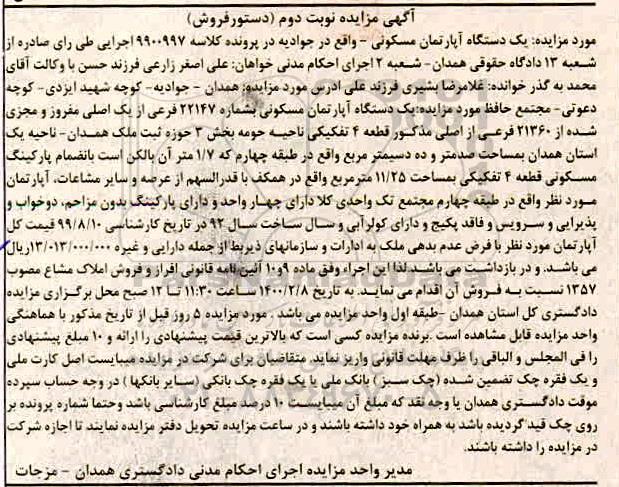 آگهی مزایده نوبت دوم (دستورفروش)
مورد مزایده: یک دستگاه آپارتمان مسکونی – واقع در جوادیه در پرونده کلاسه ۹۹۰۰۹۹۷ اجرایی طی رای صادره از
شعبه ۱۳ دادگاه حقوقی همدان- شعبه ۲ اجرای احکام مدنی خواهان: علی اصغر زارعی فرزند حسن با وکالت آقای
محمد به گذر خوانده: غلامرضا بشیری فرزند علی ادرس مورد مزایده: همدان – جوادیه- کوچه شهید ایزدی- کوچه
دعوتی- مجتمع حافظ مورد مزایده:یک دستگاه آپارتمان مسکونی بشماره ۲۲۱۴۷ فرعی از یک اصلی مفروز و مجزی
شده از ۲۱۳۶۰ فرعی از اصلی مذکور قطعه ۴ تفکیکی ناحیه حومه بخش ۳ حوزه ثبت ملک همدان- ناحیه یک
استان همدان بمساحت صدمتر و ده دسیمتر مربع واقع در طبقه چهارم که ۱/۷ متر آن بالکن است بانضمام پارکینگ
مسکونی قطعه ۴ تفکیکی بمساحت ۱۱/۲۵ مترمربع واقع در همکف با قدرالسهم از عرصه و سایر مشاعات، آپارتمان
مورد نظر واقع در طبقه چهارم مجتمع تک واحدی کلا دارای چهار واحد و دارای پارکینگ بدون مزاحم، دوخواب و
پذیرایی و سرویس و فاقد پکیج و دارای کولرآبی و سال ساخت سال ۹۲ در تاریخ کارشناسی ۹۹/۸/۱۰ قیمت کل
آپارتمان مورد نظر با فرض عدم بدهی ملک به ادارات و سازمانهای ذیربط از جمله دارایی و غیره ۱۳/۰۱۳/۰۰۰/۰۰۰ریال
می باشد. و در بازداشت می باشد لذا این اجراء وفق ماده ۹و۱۰ آئین نامه قانونی افراز و فروش املاک مشاع مصوب
۱۳۵۷ نسبت به فروش آن اقدام می نماید. به تاریخ ۱۴۰۰/۲/۸ ساعت ۱۱:۳۰ تا ۱۲ صبح محل برگزاری مزایده
دادگستری کل استان همدان –طبقه اول واحد مزایده می باشد . مورد مزایده ۵ روز قبل از تاریخ مذکور با هماهنگی
واحد مزایده قابل مشاهده است .برنده مزایده کسی است که بالاترین قیمت پیشنهادی را ارائه و ۱۰ مبلغ پیشنهادی
را فی المجلس و الباقی را ظرف مهلت قانونی واریز نماید. متقاضیان برای شرکت در مزایده میبایست اصل کارت ملی
و یک فقره چک تضمین شده (چک سبز) بانک ملی یا یک فقره چک بانکی (سایر بانکها ) در وجه حساب سپرده
موقت دادگستری همدان یا وجه نقد که مبلغ آن میبایست ۱۰ درصد مبلغ کارشناسی باشد وحتما شماره پرونده بر
روی چک قید گردیده باشد به همراه خود داشته باشند و در ساعت مزایده تحویل دفتر مزایده نمایند تا اجازه شرکت
در مزایده را داشته باشند.
مدیر واحد مزایده اجرای احکام مدنی دادگستری همدان – مزجات